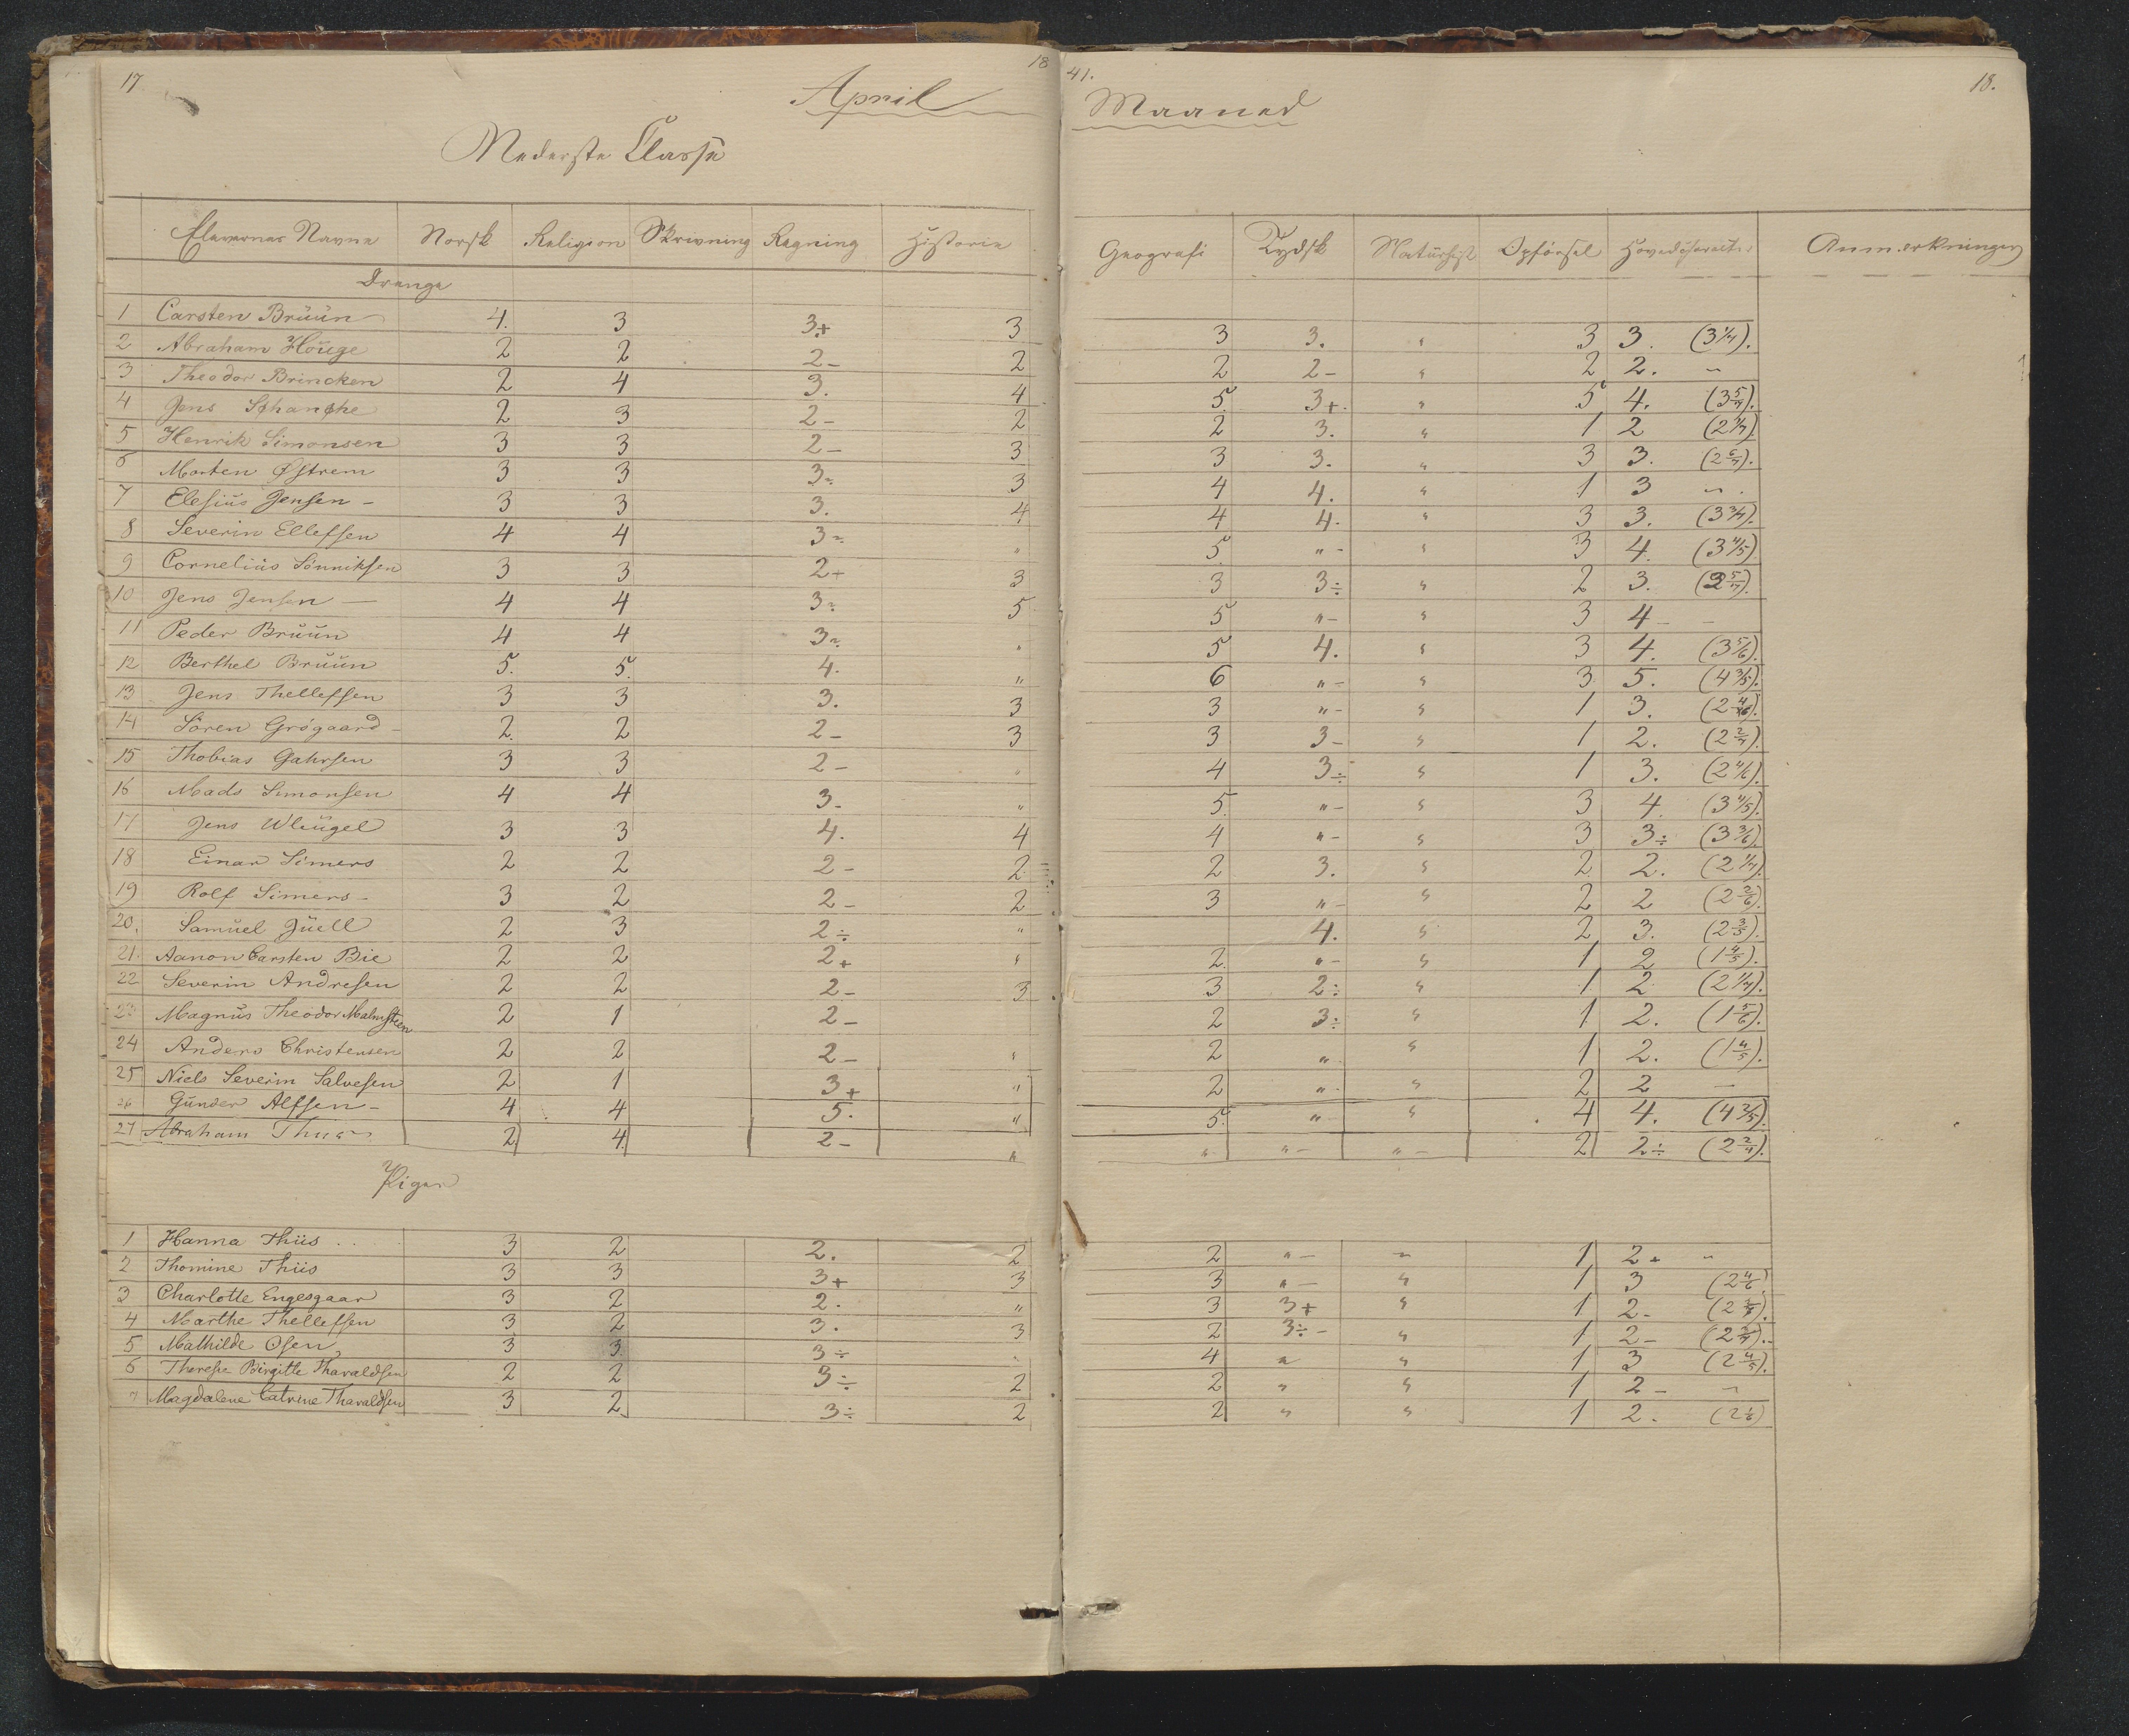 17
18
41.
18.
April Maaned
Nederste Classe
Elevernes Navne Norsk Religion Skrivning Regning Historie Geografi Tydsk Naturhist Opførsel Hovedcharakt: Anmærkninger
Drenge
1 Carsten Brüün 4. 3 3+ 3 3 3. " 3 3. (3 1/7).
2 Abraham Houge 2 2 2- 2 2 2- " 2 2. -
3 Theodor Brincken 2 4 3. 4 5. 3+. " 5 4. (3 5/7).
4 Jens Schanche 2 3 2- 2 2 3. " 1 2 (2 1/7).
5 Henrik Simonsen 3 3 2- 3 3 3. " 3 3. (2 6/7).
6 Morten Østrem 3 3 3÷ 3 4 4. " 1 3 -
7 Elesius Jensen - 3 3 3. 4 4 4. " 3 3. (3 3/7).
8 Severin Ellefsen 4 4 3÷ " 5. "- " 3 4. (3 4/5).
9 Cornelius Sönniksen 3 3 2+ 3 3 3÷ " 2 3. (2 5/7).
10 Jens Jensen - 4 4 3÷ 5 5 "- " 3 4- -
11 Peder Brüün 4 4 3÷ " 5 4. " 3 4. (3 5/6).
12 Berthel Brüün 5. 5. 4. " 6 "- " 3 5. (4 3/5).
13 Jens Thellefsen 3 3 3. 3 3 "- " 1 3. (2 4/6).
14 Sören Grögaard - 2. 2 2- 3 3 3- " 1 2. (2 2/7).
15 Thobias Gahrsen 3 3 2- " 4 3÷ " 1 3. (2 4/6).
16 Mads Simonsen 4 4 3- " 5. "- " 3 4. (3 4/5).
17 Jens Wleügel 3 3 4. 4 4 "- " 3 3÷ (3 3/6).
18 Einar Simers 2 2 2- 2 2 3. " 2 2. (2 1/7).
19 Rolf Simers - 3 2 2- 2 3 "- " 2 2 (2 2/6).
20. Samuel Jüell 2 3 2÷ " 4. " 2 3. (2 3/5).
21. Aanon Carsten Bie 2 2 2+ " 2. "- " 1 2 (1 4/5).
22 Severin Andresen 2 2 2- 3 3 2÷ " 1 2 (2 1/7).
23 Magnus Theodor Malmsteen 2 1 2- 2 3÷ " 1 2. (1 5/6).
24 Anders Christensen 2 2 2- " 2 " " 1 2. (1 4/5).
25 Niels Severin Salvesen 2 1 3+ " 2 "- " 2 2 -
26 Günder Alfsen - 4 4 5. " 5. "- " 4 4. (4 2/5).
27 Abraham Thiis 2 4 2- " " "- "- 2 2÷ (2 2/4).
Piger
1 Hanna Thiis 3 2 2. 2 2 "- - 1 2+ -
2 Thomine Thiis 3 3 3+ 3 3 "- " 1 3 (2 4/6)
3 Charlotte Engesgaar 3 2 2. " 3 3+ " 1 2-
4 Marthe Thellefsen 3 2 3. 3 2 3÷- " 1 2- (2 3/7).
5 Mathilde Osen 3 3 3÷ 4 " " 1 3 (2 4/5).
6 Therese Birgitte Tharaldsen 2 2 3÷ 2 2 " " 1 2- -
7 Magdalene Catrine Tharaldsen 3 2 3÷ 2 2 " " 1 2. (2 1/6)